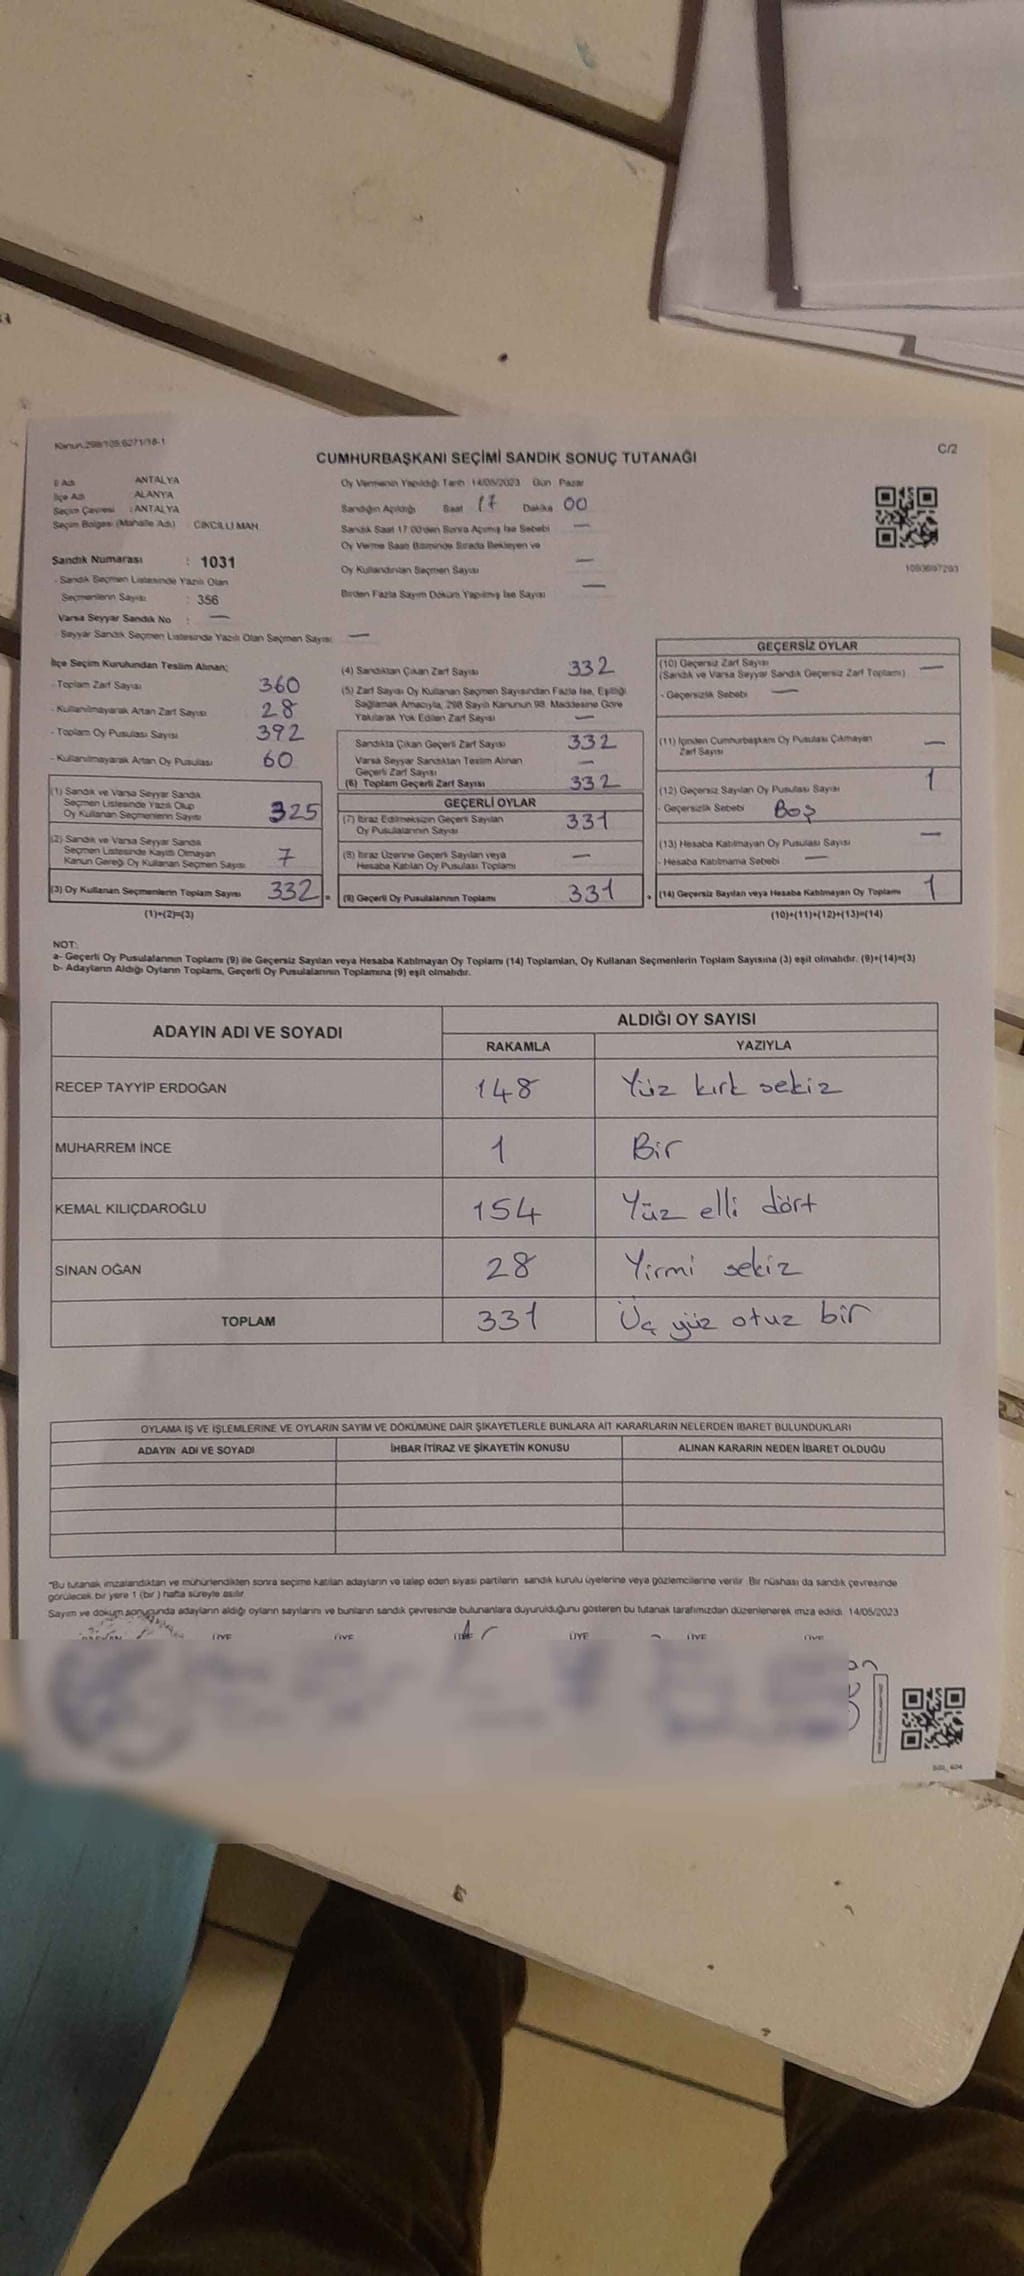 Kanun.298/105,6271/18-1
C/2
CUMHURBAŞKANI SEÇİMİ SANDIK SONUÇ TUTANAĞI
İl Adı ANTALYA
İlçe Adı ALANYA
Seçim Çevresi : ANTALYA
Seçim Bölgesi (Mahalle Adı) : CİKCİLLİ MAH.
Sandık Numarası : 1031
- Sandık Seçmen Listesinde Yazılı Olan
Seçmenlerin Sayısı : 356
Varsa Seyyar Sandık No : —
- Seyyar Sandık Seçmen Listesinde Yazılı Olan Seçmen Sayısı: —
Oy Vermenin Yapıldığı Tarih : 14/05/2023 Gün : Pazar
Sandığın Açıldığı Saat 17 Dakika 00
Sandık Saat 17:00'den Sonra Açılmış İse Sebebi —
Oy Verme Saati Bitiminde Sırada Bekleyen ve
Oy Kullandırılan Seçmen Sayısı —
Birden Fazla Sayım Döküm Yapılmış İse Sayısı —
1093697293
İlçe Seçim Kurulundan Teslim Alınan;
- Toplam Zarf Sayısı 360
- Kullanılmayarak Artan Zarf Sayısı 28
- Toplam Oy Pusulası Sayısı 392
- Kullanılmayarak Artan Oy Pusulası 60
(1) Sandık ve Varsa Seyyar Sandık
Seçmen Listesinde Yazılı Olup
Oy Kullanan Seçmenlerin Sayısı 325
(2) Sandık ve Varsa Seyyar Sandık
Seçmen Listesinde Kayıtlı Olmayan
Kanun Gereği Oy Kullanan Seçmen Sayısı 7
(3) Oy Kullanan Seçmenlerin Toplam Sayısı 332 =
(1)+(2)=(3)
(4) Sandıktan Çıkan Zarf Sayısı 332
(5) Zarf Sayısı Oy Kullanan Seçmen Sayısından Fazla İse, Eşitliği
Sağlamak Amacıyla, 298 Sayılı Kanunun 98. Maddesine Göre
Yakılarak Yok Edilen Zarf Sayısı —
Sandıkta Çıkan Geçerli Zarf Sayısı 332
Varsa Seyyar Sandıktan Teslim Alınan
Geçerli Zarf Sayısı —
(6) Toplam Geçerli Zarf Sayısı 332
GEÇERLİ OYLAR
(7) İtiraz Edilmeksizin Geçerli Sayılan
Oy Pusulalarının Sayısı 331
(8) İtiraz Üzerine Geçerli Sayılan veya
Hesaba Katılan Oy Pusulası Toplamı —
(9) Geçerli Oy Pusulalarının Toplamı 331 +
GEÇERSİZ OYLAR
(10) Geçersiz Zarf Sayısı —
(Sandık ve Varsa Seyyar Sandık Geçersiz Zarf Toplamı)
- Geçersizlik Sebebi —
(11) İçinden Cumhurbaşkanı Oy Pusulası Çıkmayan
Zarf Sayısı —
(12) Geçersiz Sayılan Oy Pusulası Sayısı 1
- Geçersizlik Sebebi Boş
(13) Hesaba Katılmayan Oy Pusulası Sayısı —
- Hesaba Katılmama Sebebi —
(14) Geçersiz Sayılan veya Hesaba Katılmayan Oy Toplamı 1
(10)+(11)+(12)+(13)=(14)
NOT:
a- Geçerli Oy Pusulalarının Toplamı (9) ile Geçersiz Sayılan veya Hesaba Katılmayan Oy Toplamı (14) Toplamları, Oy Kullanan Seçmenlerin Toplam Sayısına (3) eşit olmalıdır. (9)+(14)=(3)
b- Adayların Aldığı Oyların Toplamı, Geçerli Oy Pusulalarının Toplamına (9) eşit olmalıdır.
ADAYIN ADI VE SOYADI ALDIĞI OY SAYISI
RAKAMLA YAZIYLA
RECEP TAYYİP ERDOĞAN 148 Yüz kırk sekiz
MUHARREM İNCE 1 Bir
KEMAL KILIÇDAROĞLU 154 Yüz elli dört
SİNAN OĞAN 28 Yirmi sekiz
TOPLAM 331 Üç yüz otuz bir
OYLAMA İŞ VE İŞLEMLERİNE VE OYLARIN SAYIM VE DÖKÜMÜNE DAİR ŞİKAYETLERLE BUNLARA AİT KARARLARIN NELERDEN İBARET BULUNDUKLARI
ADAYIN ADI VE SOYADI İHBAR İTİRAZ VE ŞİKAYETİN KONUSU ALINAN KARARIN NEDEN İBARET OLDUĞU
*Bu tutanak imzalandıktan ve mühürlendikten sonra seçime katılan adayların ve talep eden siyasi partilerin sandık kurulu üyelerine veya gözlemcilerine verilir. Bir nüshası da sandık çevresinde
görülecek bir yere 1 (bir) hafta süreyle asılır.
Sayım ve döküm sonucunda adayların aldığı oyların sayılarını ve bunların sandık çevresinde bulunanlara duyurulduğunu gösteren bu tutanak tarafımızdan düzenlenerek imza edildi. 14/05/2023
ÜYE ÜYE ÜYE ÜYE ÜYE